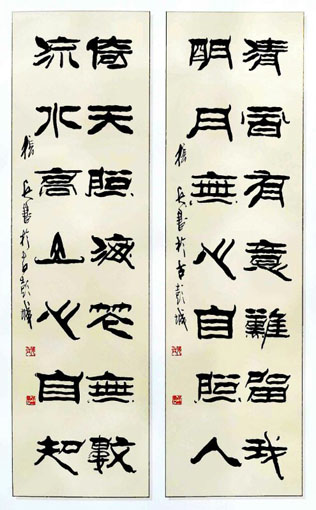 清風有意難留我
明月無心自照人
書於古彭城
倚天照海花無數
流水高山心自知
書於古彭城